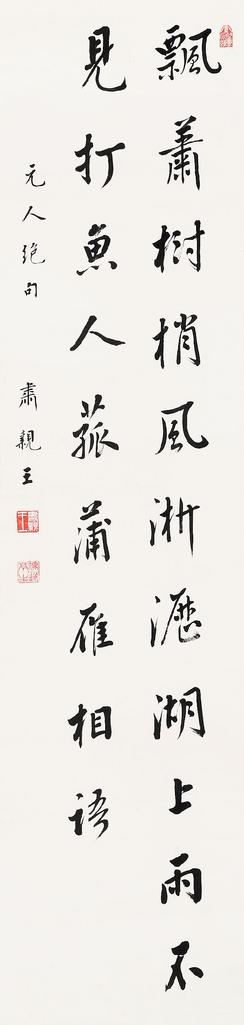 飄蕭樹梢風淅瀝湖上雨不
見打魚人菰蒲雁相語
元人絕句 肅親王